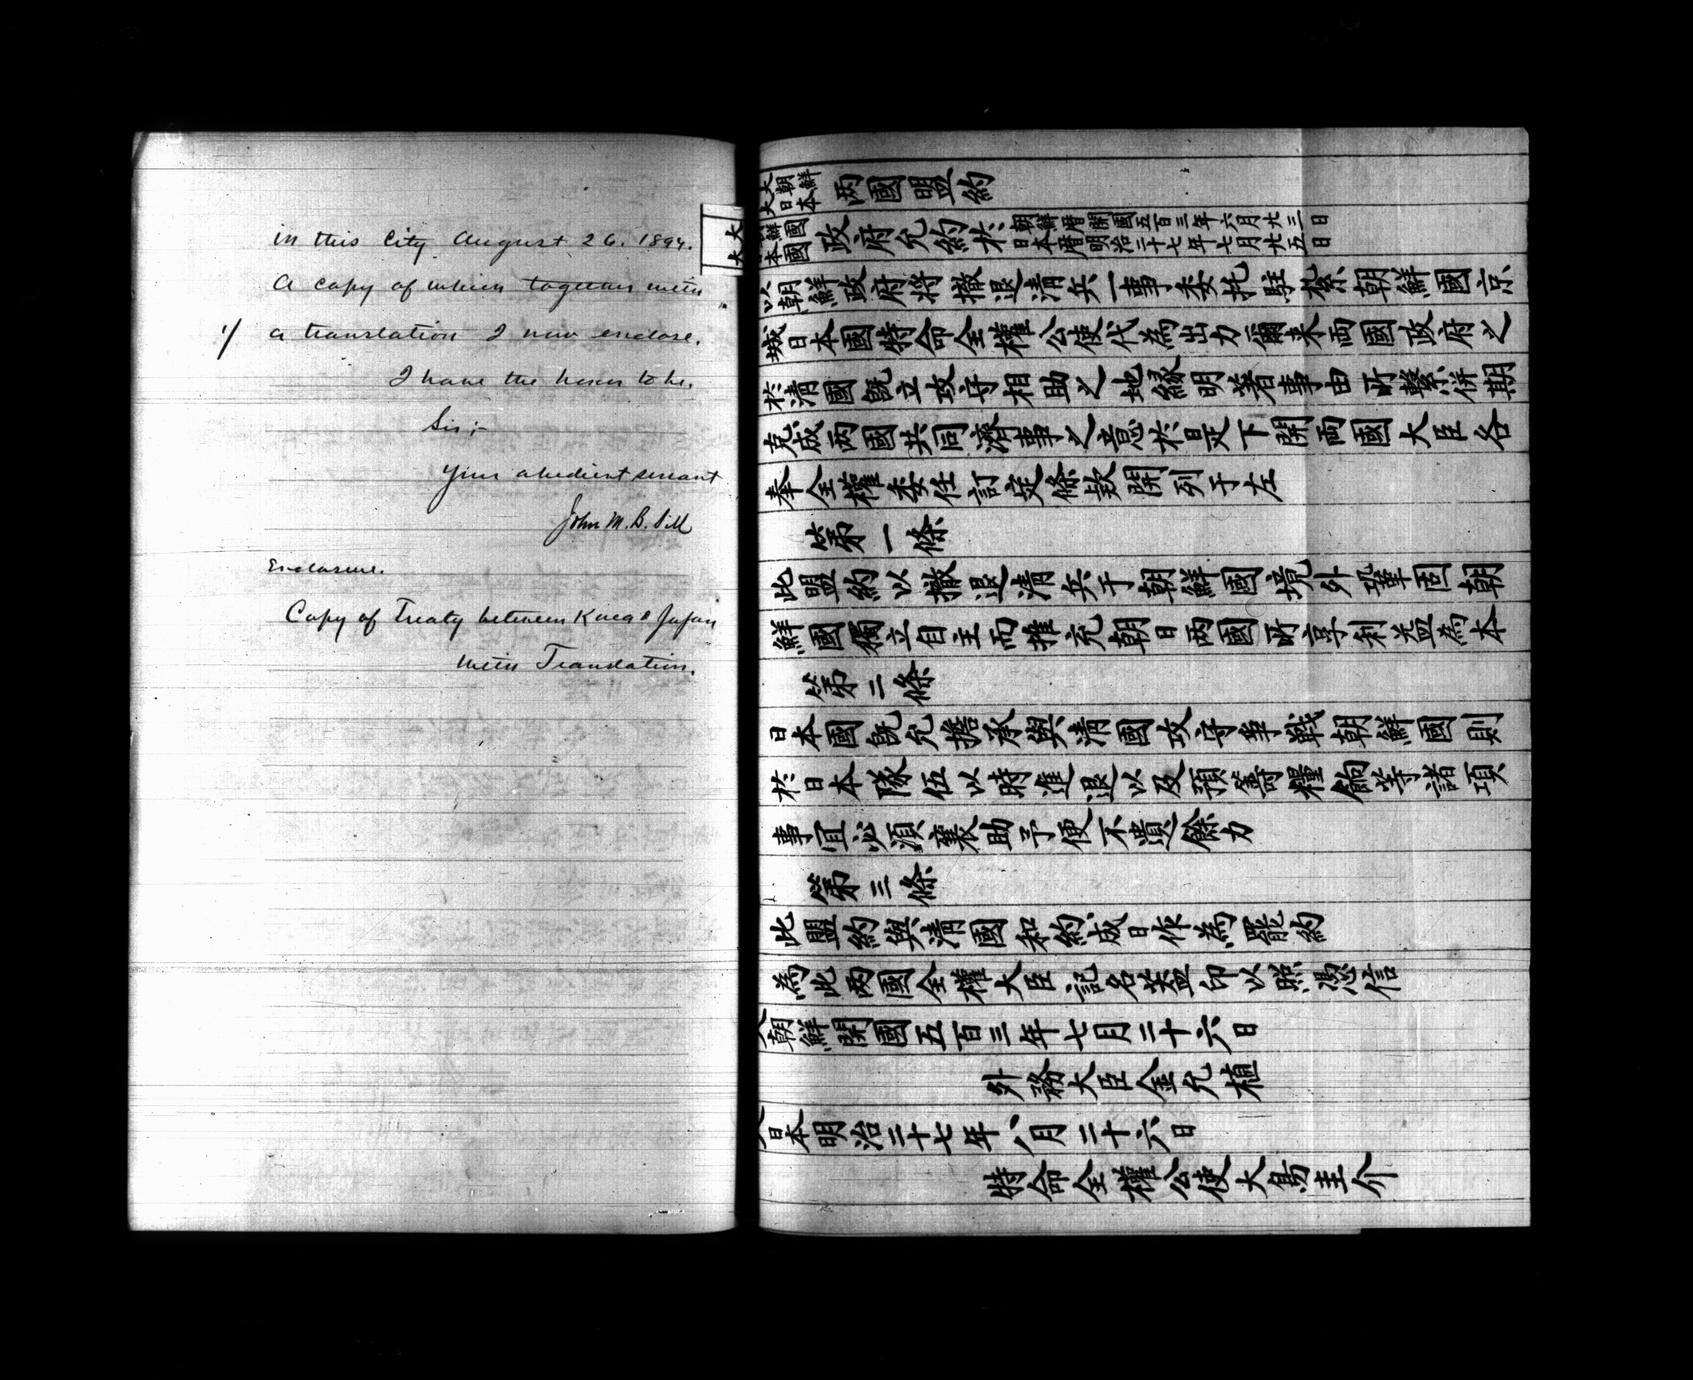 in this City August 26. 1894.
A copy of which together with
1/ a translation I now enclose.
I have the honor to be,
Sir;-
Your obedient servant
John M. B. Sill
Enclosure.
Copy of Treaty between Korea & Japan
with Translation.
大朝鮮
大日本 兩國盟約
大朝鮮國
大日本國 政府允約於 朝鮮曆開國五百三年六月廿三日
日本曆明治二十七年七月廿五日
以朝鮮政府將撤退清兵一事委托駐紮朝鮮國京
城日本國特命全權公使代為出力爾來兩國政府之
於清國既立攻守相助之地緣明著事由所繫併期
克成兩國共同濟事之意於是下開兩國大臣各
奉全權委任訂定條款開列于左
第一條
此盟約以撤退清兵于朝鮮國境外鞏固朝
鮮國獨立自主而推充朝日兩國所享利益為本
第二條
日本國既允擔承與清國攻守爭戰朝鮮國則
於日本隊伍以時進退以及預籌糧餉等諸項
事宜必須襄助予便不遺餘力
第三條
此盟約與清國和約成日作為罷約
為此兩國全權大臣記名蓋印以照憑信
大朝鮮開國五百三年七月二十六日
外務大臣金允植
大日本明治二十七年八月二十六日
特命全權公使大鳥圭介